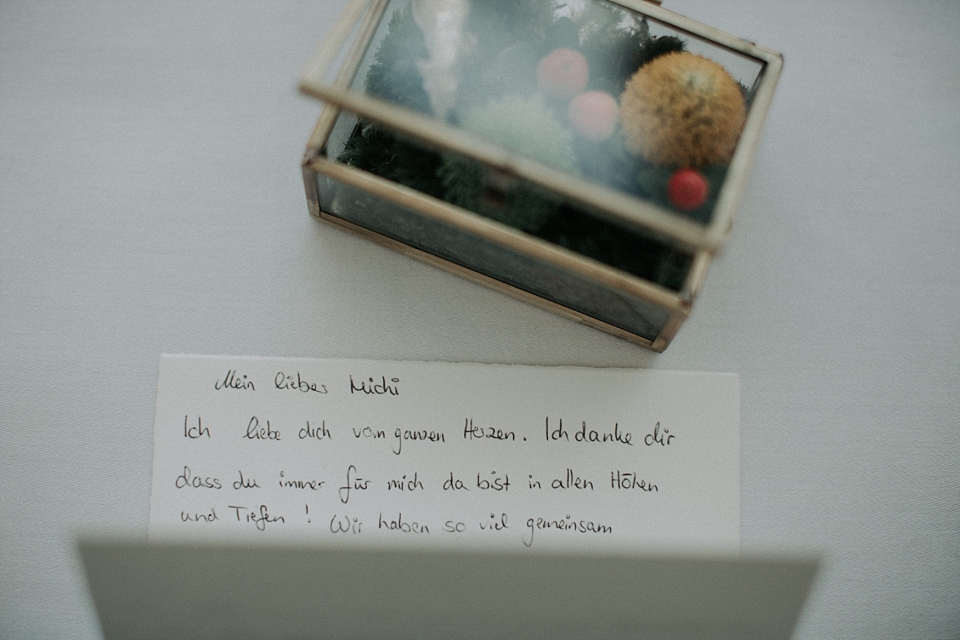 Mein lieber Michi
Ich liebe dich vom ganzen Herzen. Ich danke dir
dass du immer für mich da bist in allen Höhen
und Tiefen! Wir haben so viel gemeinsam